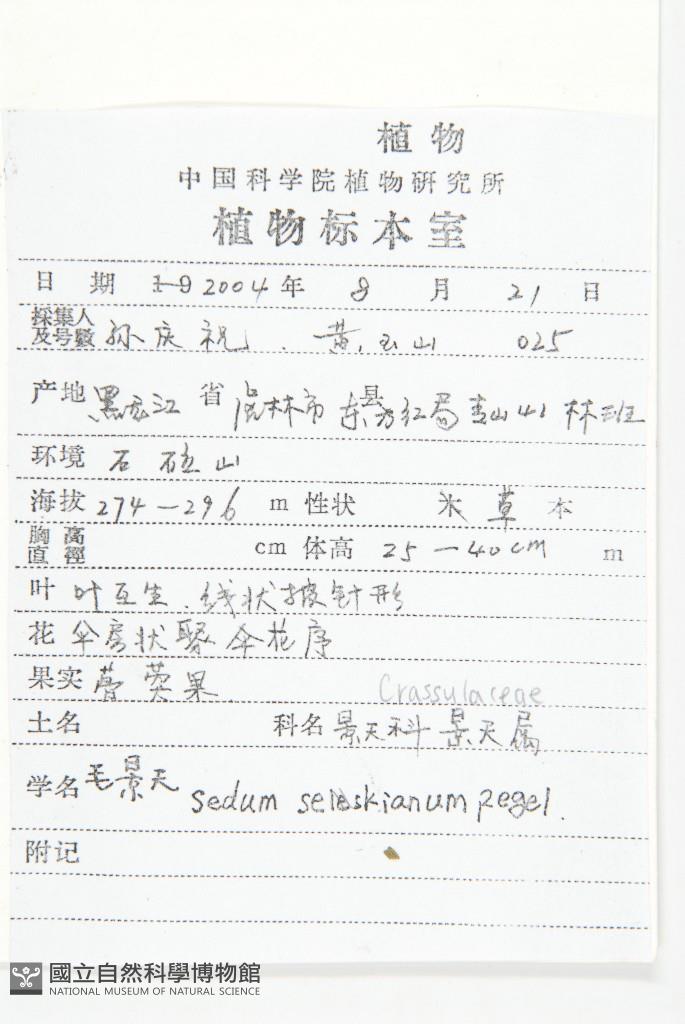 植物
中国科学院植物研究所
植物标本室
日期 19 2004年 8月 21日
採集人及号数 孙庆祝、黄玉山 025
产地 黑龙江省 虎林市 东方红局 县 青山41林班
环境 石砬山
海拔 274—296 m 性状 草本
胸高直徑 cm 体高 25—40cm m
叶 叶互生、线状披针形
花 伞房状聚伞花序
果实 蓇葖果
Crassulaceae
土名 科名 景天科 景天属
学名 毛景天 Sedum seleskianum Regel.
附记
國立自然科學博物館
NATIONAL MUSEUM OF NATURAL SCIENCE